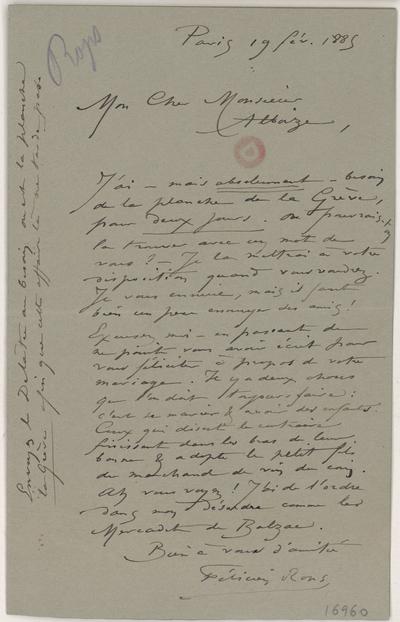 Paris 19 fév. 1885
Rops
Mon Cher Monsieur
Albaize,
J'ai – mais absolument – besoin
de la planche de la Grève,
pour deux jours. où pourrais-je
la trouver avec un mot de
vous? – Je la mettrai à votre
disposition quand vous voudrez.
Je vous ennuie, mais il faut
bien un peu ennuyer ses amis!
Excusez-moi – en passant de
ne point vous avoir écrit pour
vous féliciter à propos de votre
mariage. Il y a deux choses
que l'on doit toujours faire:
c'est se marier & avoir des enfants.
Ceux qui disent le contraire
finissent dans les bras de leur
bonne & adopte le petit fils
du marchand de vin du coin.
Ah vous voyez! J'ai de l'ordre
dans mon désordre comme les
Mercadet de Balzac.
Bien à vous d'amitié
Félicien Rops
Envoyez le Delâtre au besoin où est la planche
la Grève afin que cette affaire là ne tarde pas.
16960